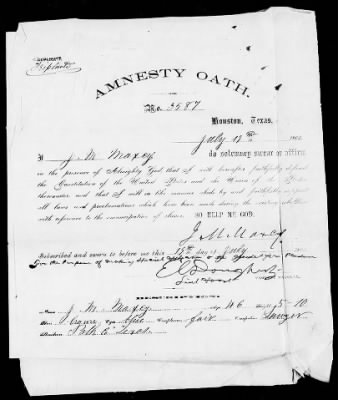 DUPLICATE
Triplicate
AMNESTY OATH.
No. 3587
Houston, Texas,
July 18th 186
I J. M. Maxey do solemnly swear or affirm
in the presence of Almighty God, that I will hereafter faithfully defend
the Constitution of the United States and the Union of the States
thereunder and that I will in like manner abide by and faithfully support
all laws and proclamations which have been made during the existing rebellion
with reference to the emancipation of slaves. SO HELP ME GOD.
J. M. Maxey
Subscribed and sworn to before me this 18th day of July
for the purpose of
E C Dougherty
Lieut
DESCRIPTION.
J. M. Maxey Age 46 5-10
Hair Eyes Complexion fair Occupation Lawyer
Residence Polk Co Texas